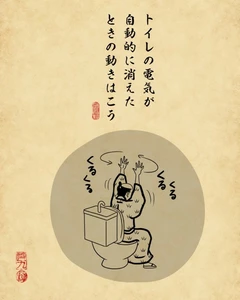 トイレの電気が
自動的に消えた
ときの動きはこう
くるくる
くるくる